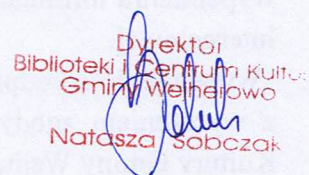 Dyrektor
Biblioteki i Centrum Kultu
Gminy Wejherowo
Natasza Sobczak